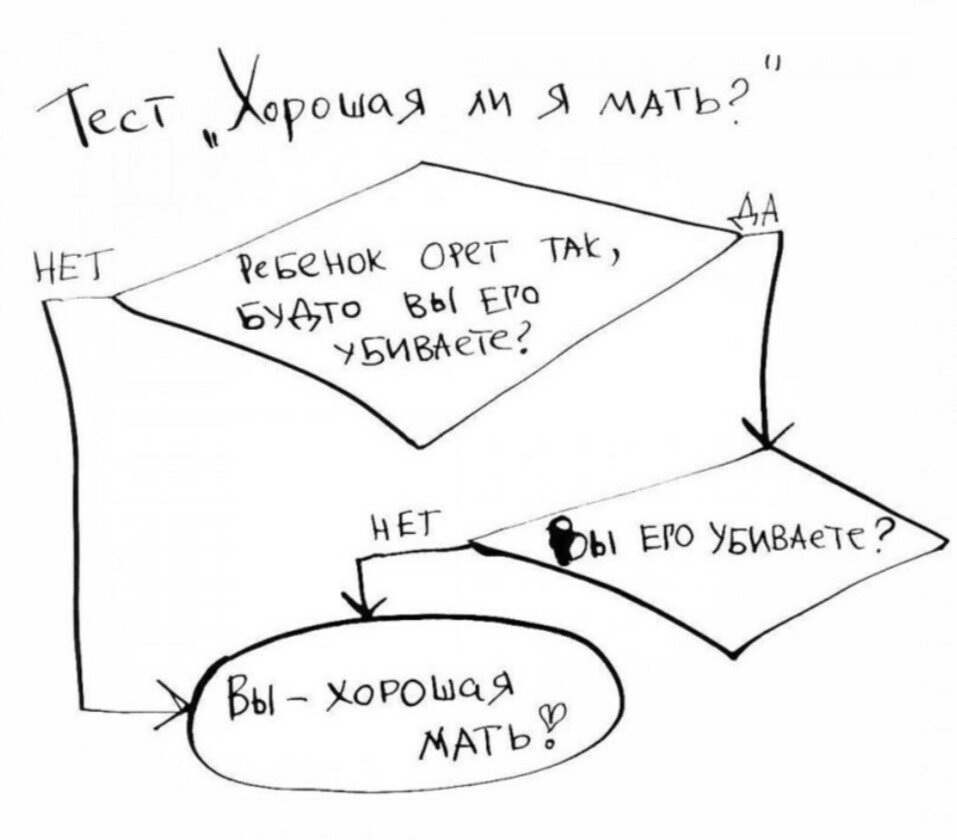 Тест „Хорошая ли я мать?"
ДА
НЕТ
Ребенок орет так,
будто вы его
убиваете?
НЕТ
Вы его убиваете?
Вы – хорошая
мать!